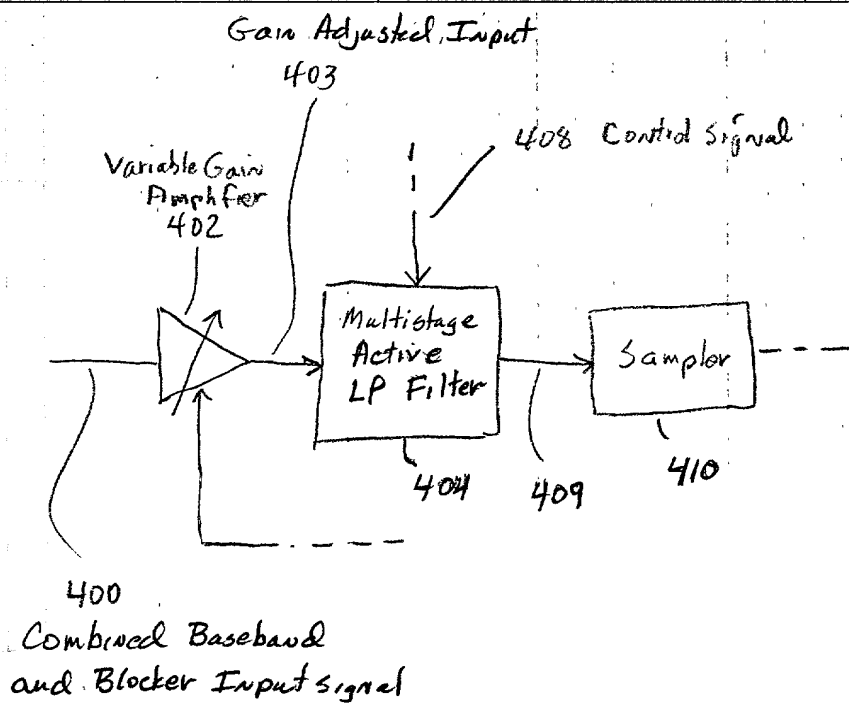 Gain Adjusted Input
403
408 Control Signal
Variable Gain
Amplifier
402
Multistage
Active
LP Filter
Sampler
404
409
410
400
Combined Baseband
and Blocker Input signal